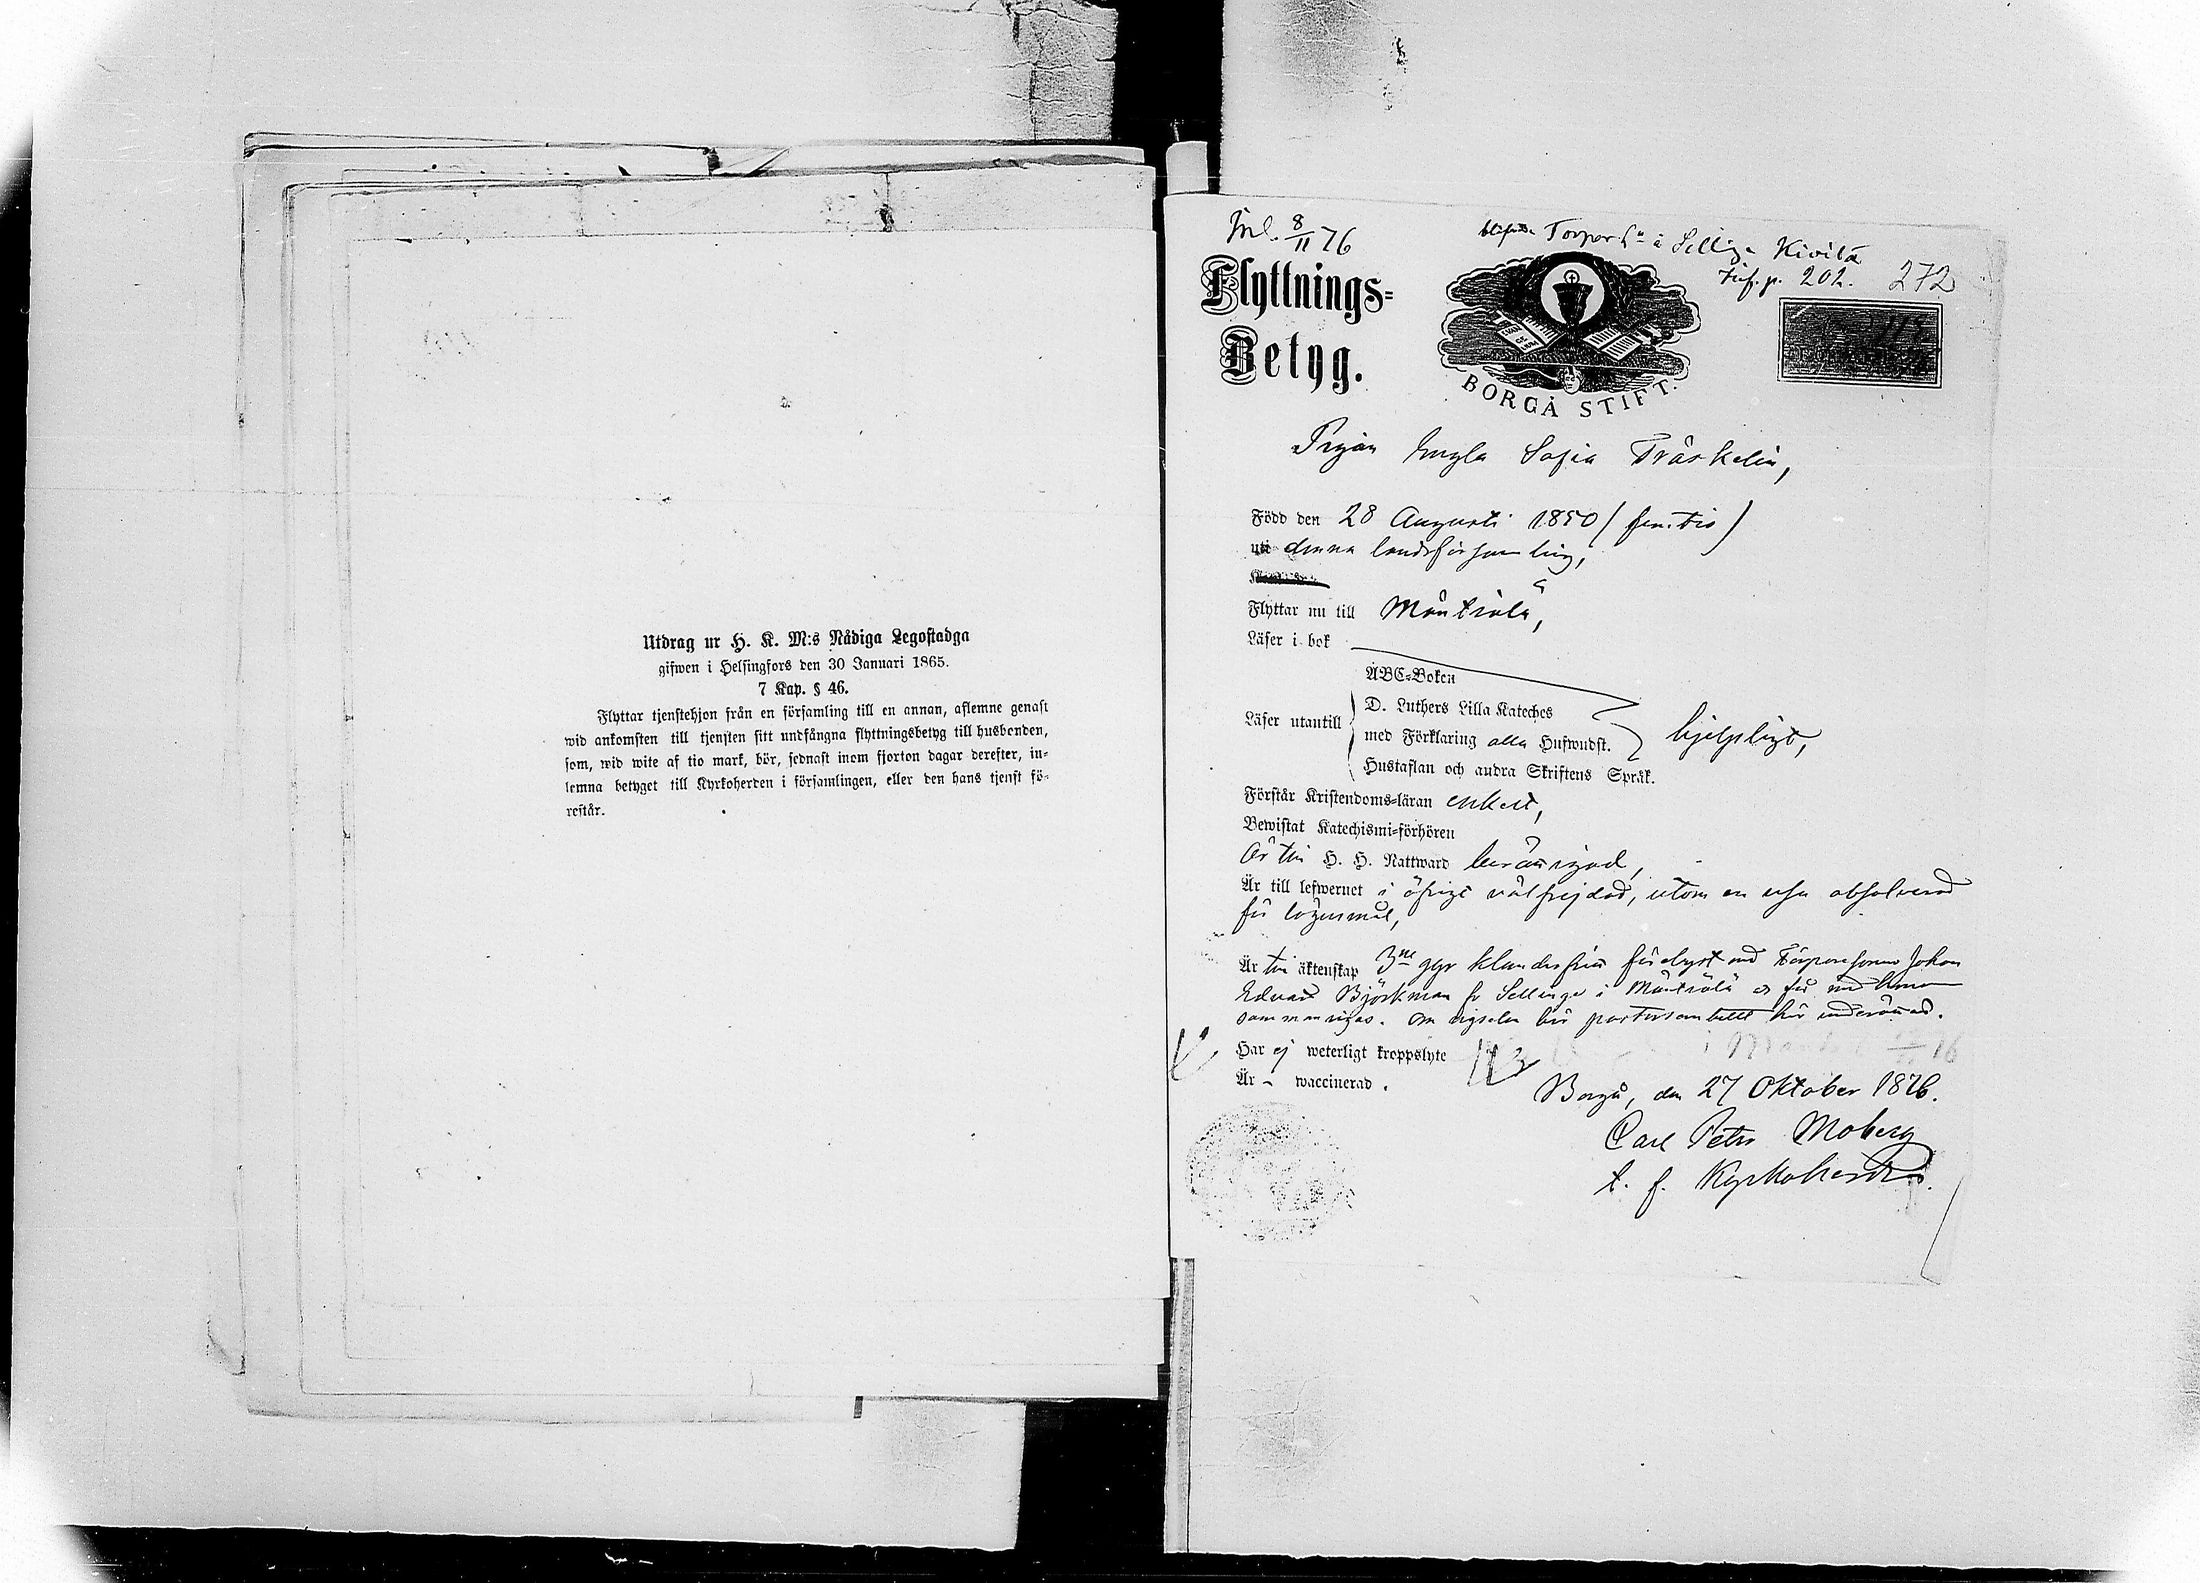 Utdrag ur H. K. M:s Nådiga Legostadga
gifwen i Helsingfors den 30 Januari 1865.
7 Kap. § 46.
Flyttar tjenstehjon från en församling till en annan, aflemne genast
wid ankomsten till tjensten sitt undfångna flyttningsbetyg till husbonden,
som, wid wite af tio mark, bör, sednast inom fjorton dagar derefter, in-
lemna betyget till Kyrkoherden i församlingen, eller den hans tjenst fö-
restår.
Inl. 8/11 76
i Sellinge Kivilä
Inf. p. 202. 272
Flyttnings-
Betyg.
BORGÅ STIFT.
Pigan Engla Sofia Träskelin,
Född den 28 Augusti 1850 (femtio)
uti denna landsförsamling,
Flyttar nu till Mäntsälä,
Läser i bok
ABC-Boken
D. Luthers Lilla Kateches
Läser utantill
med Förklaring alla Hufwudst.
hjelpligt,
Hustaflan och andra Skriftens Språk.
Förstår Kristendoms-läran enkelt,
Bewistat Katechismi-förhören
Är till H. H. Nattward berättigad,
Är till lefwernet i öfrigt välfrejdad, utom en resa absolverad
för lägersmål,
Är till äktenskap 3ne ggr klanderfritt förelyst med Torparesonen Johan
Edvard Björkman fr Sellinge i Mäntsälä o får med honom
sammanvigas. Om vigseln bör pastorsembetet här underrättas.
Har ej weterligt kroppslyte
Är waccinerad.
Borgå, den 27 Oktober 1876.
Carl Petter Moberg
t. f. Kyrkoherde.